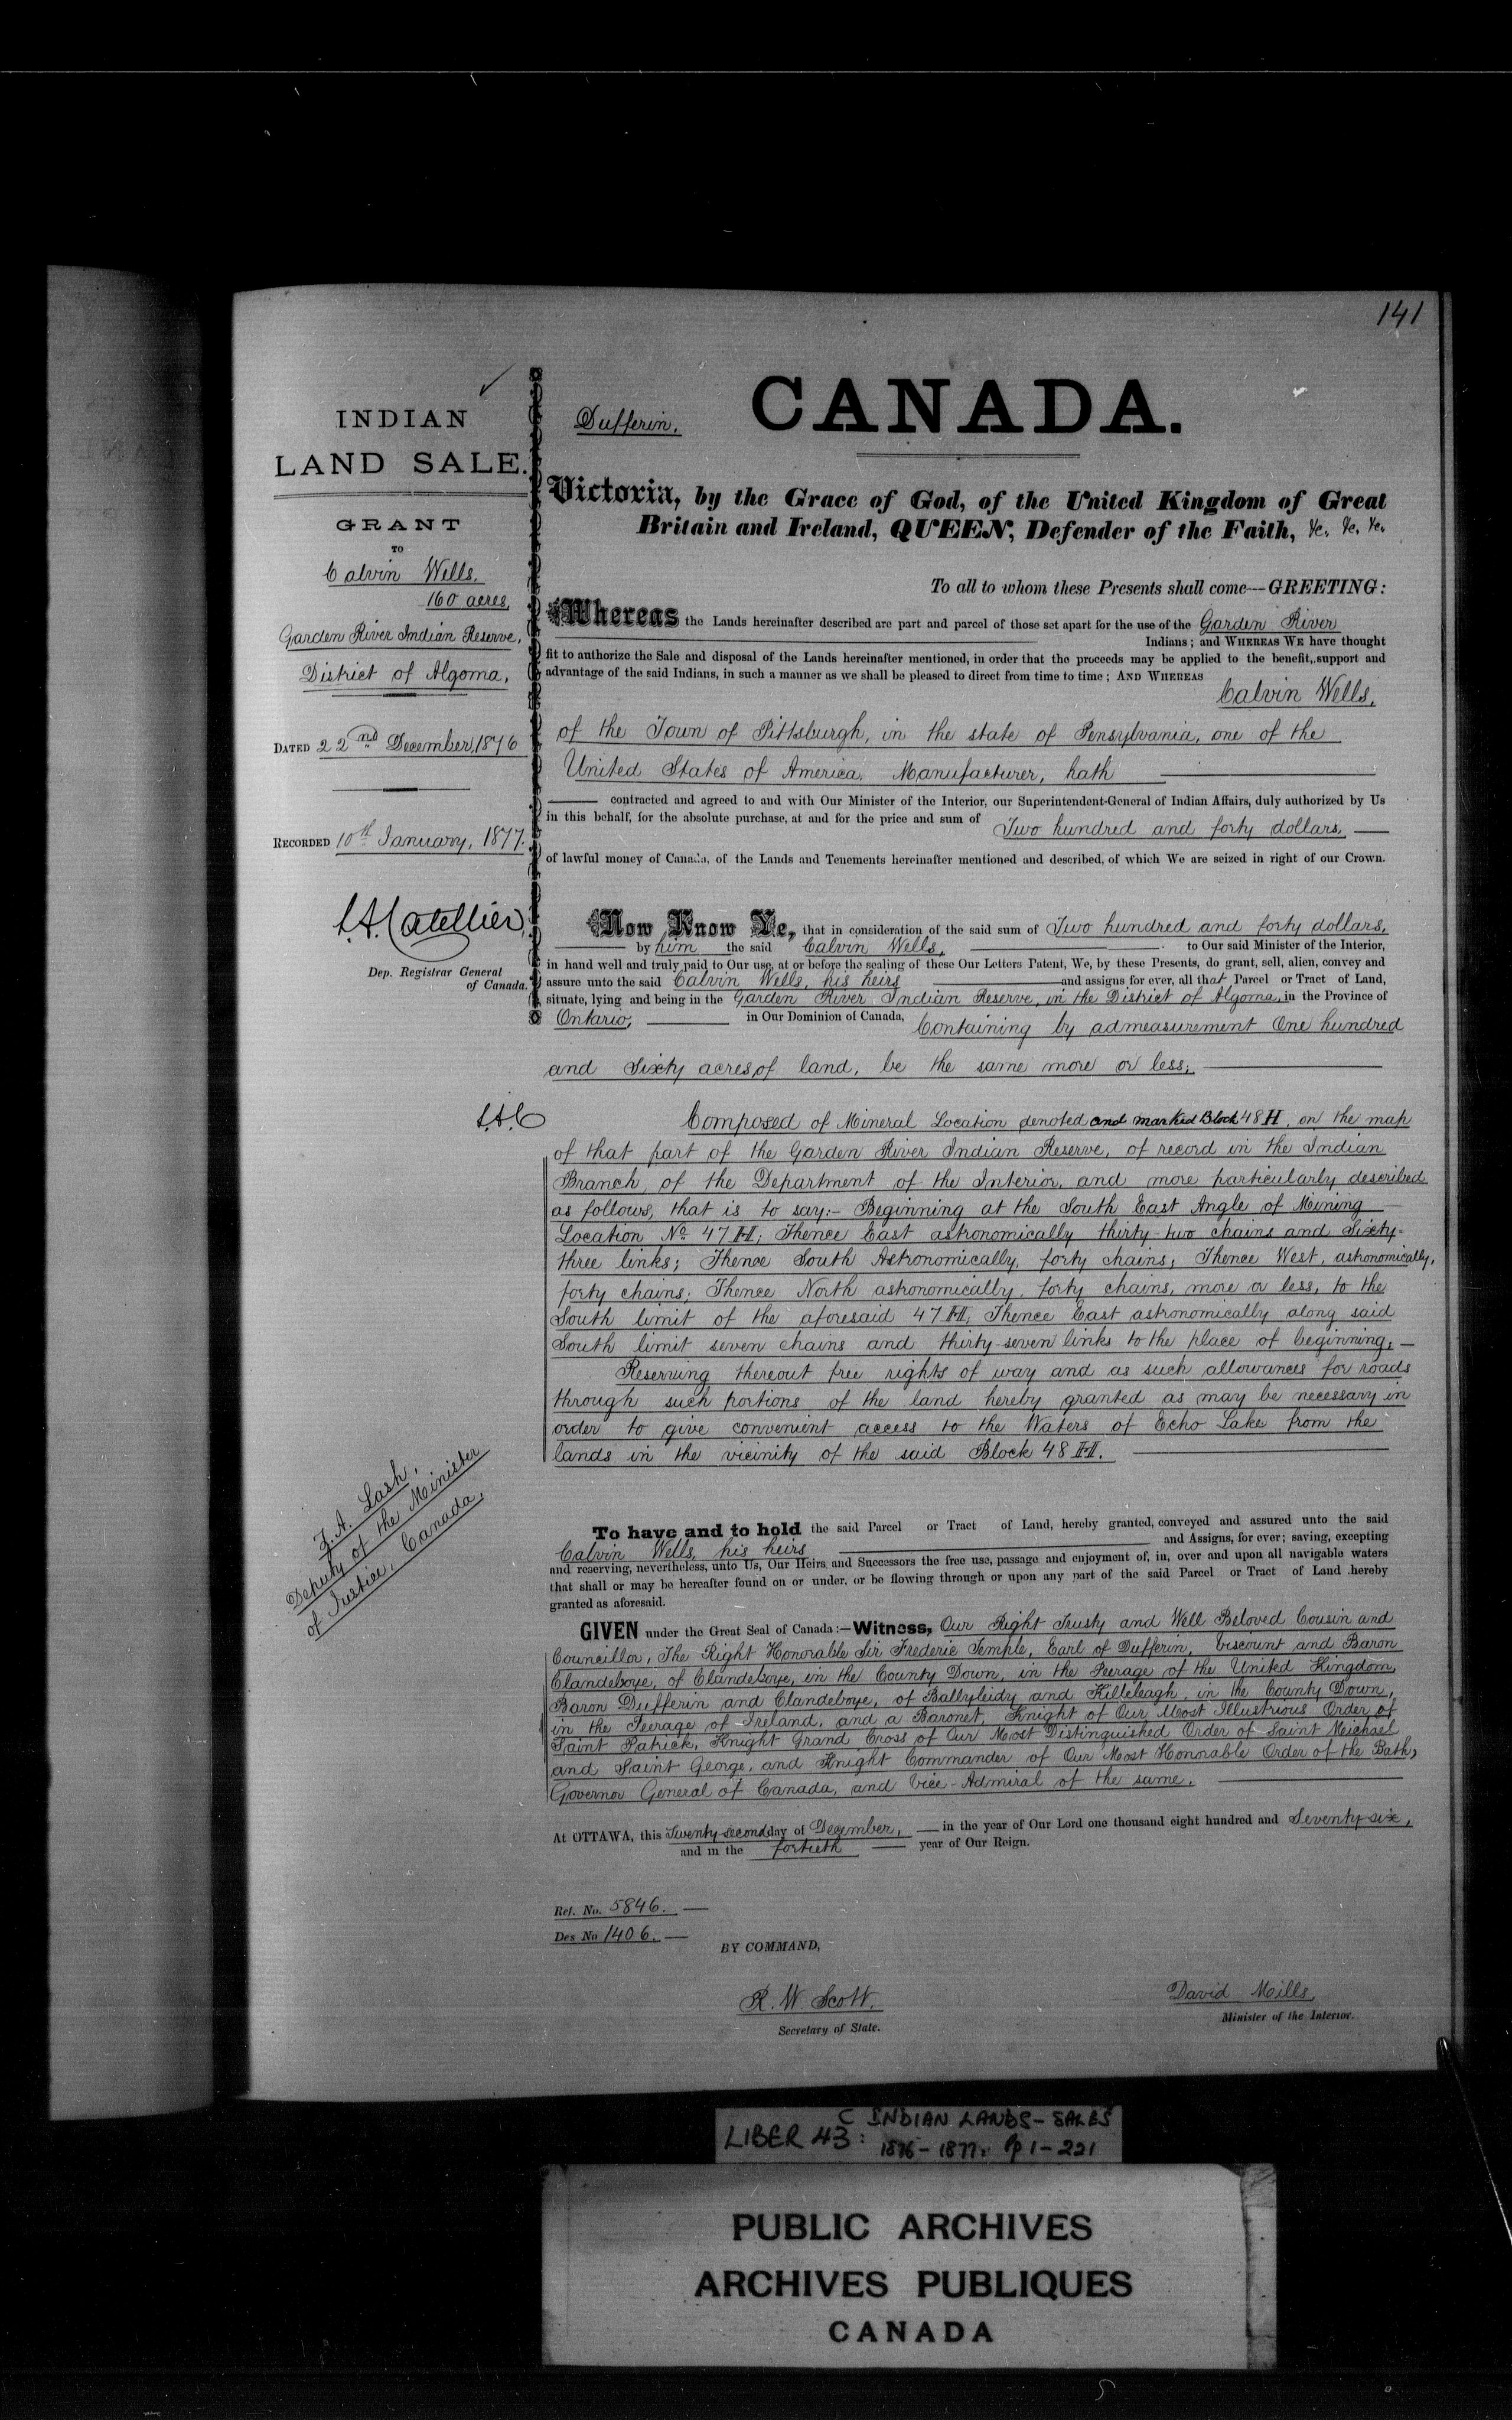 141
INDIAN
LAND SALE.
GRANT
TO
Calvin Wells.
160 acres,
Garden River Indian Reserve,
District of Algoma,
DATED 22nd December, 1876
RECORDED 10th January, 1877.
L.A. Catellier
Dep. Registrar General
of Canada.
L.A.C
F.A. Lash,
Deputy of the Minister
of Justice, Canada.
Dufferin.
CANADA.
Victoria, by the Grace of God, of the United Kingdom of Great
Britain and Ireland, QUEEN, Defender of the Faith, &c. &c. &c.
To all to whom these Presents shall come—GREETING:
Whereas the Lands hereinafter described are part and parcel of those set apart for the use of the Garden River
Indians; and WHEREAS WE have thought
fit to authorize the Sale and disposal of the Lands hereinafter mentioned, in order that the proceeds may be applied to the benefit, support and
advantage of the said Indians, in such a manner as we shall be pleased to direct from time to time; AND WHEREAS
Calvin Wells,
of the Town of Pittsburgh, in the state of Pensylvania, one of the
United States of America, Manufacturer, hath
contracted and agreed to and with Our Minister of the Interior, our Superintendent-General of Indian Affairs, duly authorized by Us
in this behalf, for the absolute purchase, at and for the price and sum of Two hundred and forty dollars,
of lawful money of Canada, of the Lands and Tenements hereinafter mentioned and described, of which We are seized in right of our Crown.
Now Know Ye, that in consideration of the said sum of Two hundred and forty dollars,
by him the said Calvin Wells, to Our said Minister of the Interior,
in hand well and truly paid to Our use, at or before the sealing of these Our Letters Patent, We, by these Presents, do grant, sell, alien, convey and
assure unto the said Calvin Wells, his heirs and assigns for ever, all that Parcel or Tract of Land,
situate, lying and being in the Garden River Indian Reserve, in the District of Algoma, in the Province of
Ontario, in Our Dominion of Canada, Containing by admeasurement One hundred
and Sixty acres, of land, be the same more or less;
Composed of Mineral Location denoted and marked Block 48 H, on the map
of that part of the Garden River Indian Reserve, of record in the Indian
Branch, of the Department of the Interior, and more particularly described
as follows, that is to say:- Beginning at the South East Angle of Mining
Location No. 47 H; Thence East astronomically thirty-two chains and Sixty-
three links; Thence South Astronomically, forty chains; Thence West, astronomically,
forty chains; Thence North astronomically, forty chains, more or less, to the
South limit of the aforesaid 47 H, Thence East astronomically along said
South limit seven chains and thirty-seven links to the place of beginning,
Reserving thereout free rights of way and as such allowances for roads
through such portions of the land hereby granted as may be necessary in
order to give convenient access to the Waters of Echo Lake from the
lands in the vicinity of the said Block 48 H.
To have and to hold the said Parcel or Tract of Land, hereby granted, conveyed and assured unto the said
Calvin Wells, his heirs and Assigns, for ever; saving, excepting
and reserving, nevertheless, unto Us, Our Heirs and Successors the free use, passage and enjoyment of, in, over and upon all navigable waters
that shall or may be hereafter found on or under, or be flowing through or upon any part of the said Parcel or Tract of Land hereby
granted as aforesaid.
GIVEN under the Great Seal of Canada:—Witness, Our Right Trusty and Well Beloved Cousin and
Councillor, The Right Honorable Sir Frederic Temple, Earl of Dufferin, Viscount and Baron
Clandeboye, of Clandeboye, in the County Down, in the Peerage of the United Kingdom,
Baron Dufferin and Clandeboye, of Ballyleidy and Killeleagh, in the County Down,
in the Peerage of Ireland, and a Baronet, Knight of Our Most Illustrious Order of
Saint Patrick, Knight Grand Cross of Our Most Distinguished Order of Saint Michael
and Saint George, and Knight Commander of Our Most Honorable Order of the Bath,
Governor General of Canada, and Vice-Admiral of the same.
At OTTAWA, this Twenty-second day of December, in the year of Our Lord one thousand eight hundred and Seventy-six,
and in the fortieth year of Our Reign.
Ref. No. 5846.
Des No 1406.
BY COMMAND,
R. W. Scott.
Secretary of State.
David Mills,
Minister of the Interior.
LIBER 43: C INDIAN LANDS-SALES
1876-1877. Pp 1-221
PUBLIC ARCHIVES
ARCHIVES PUBLIQUES
CANADA